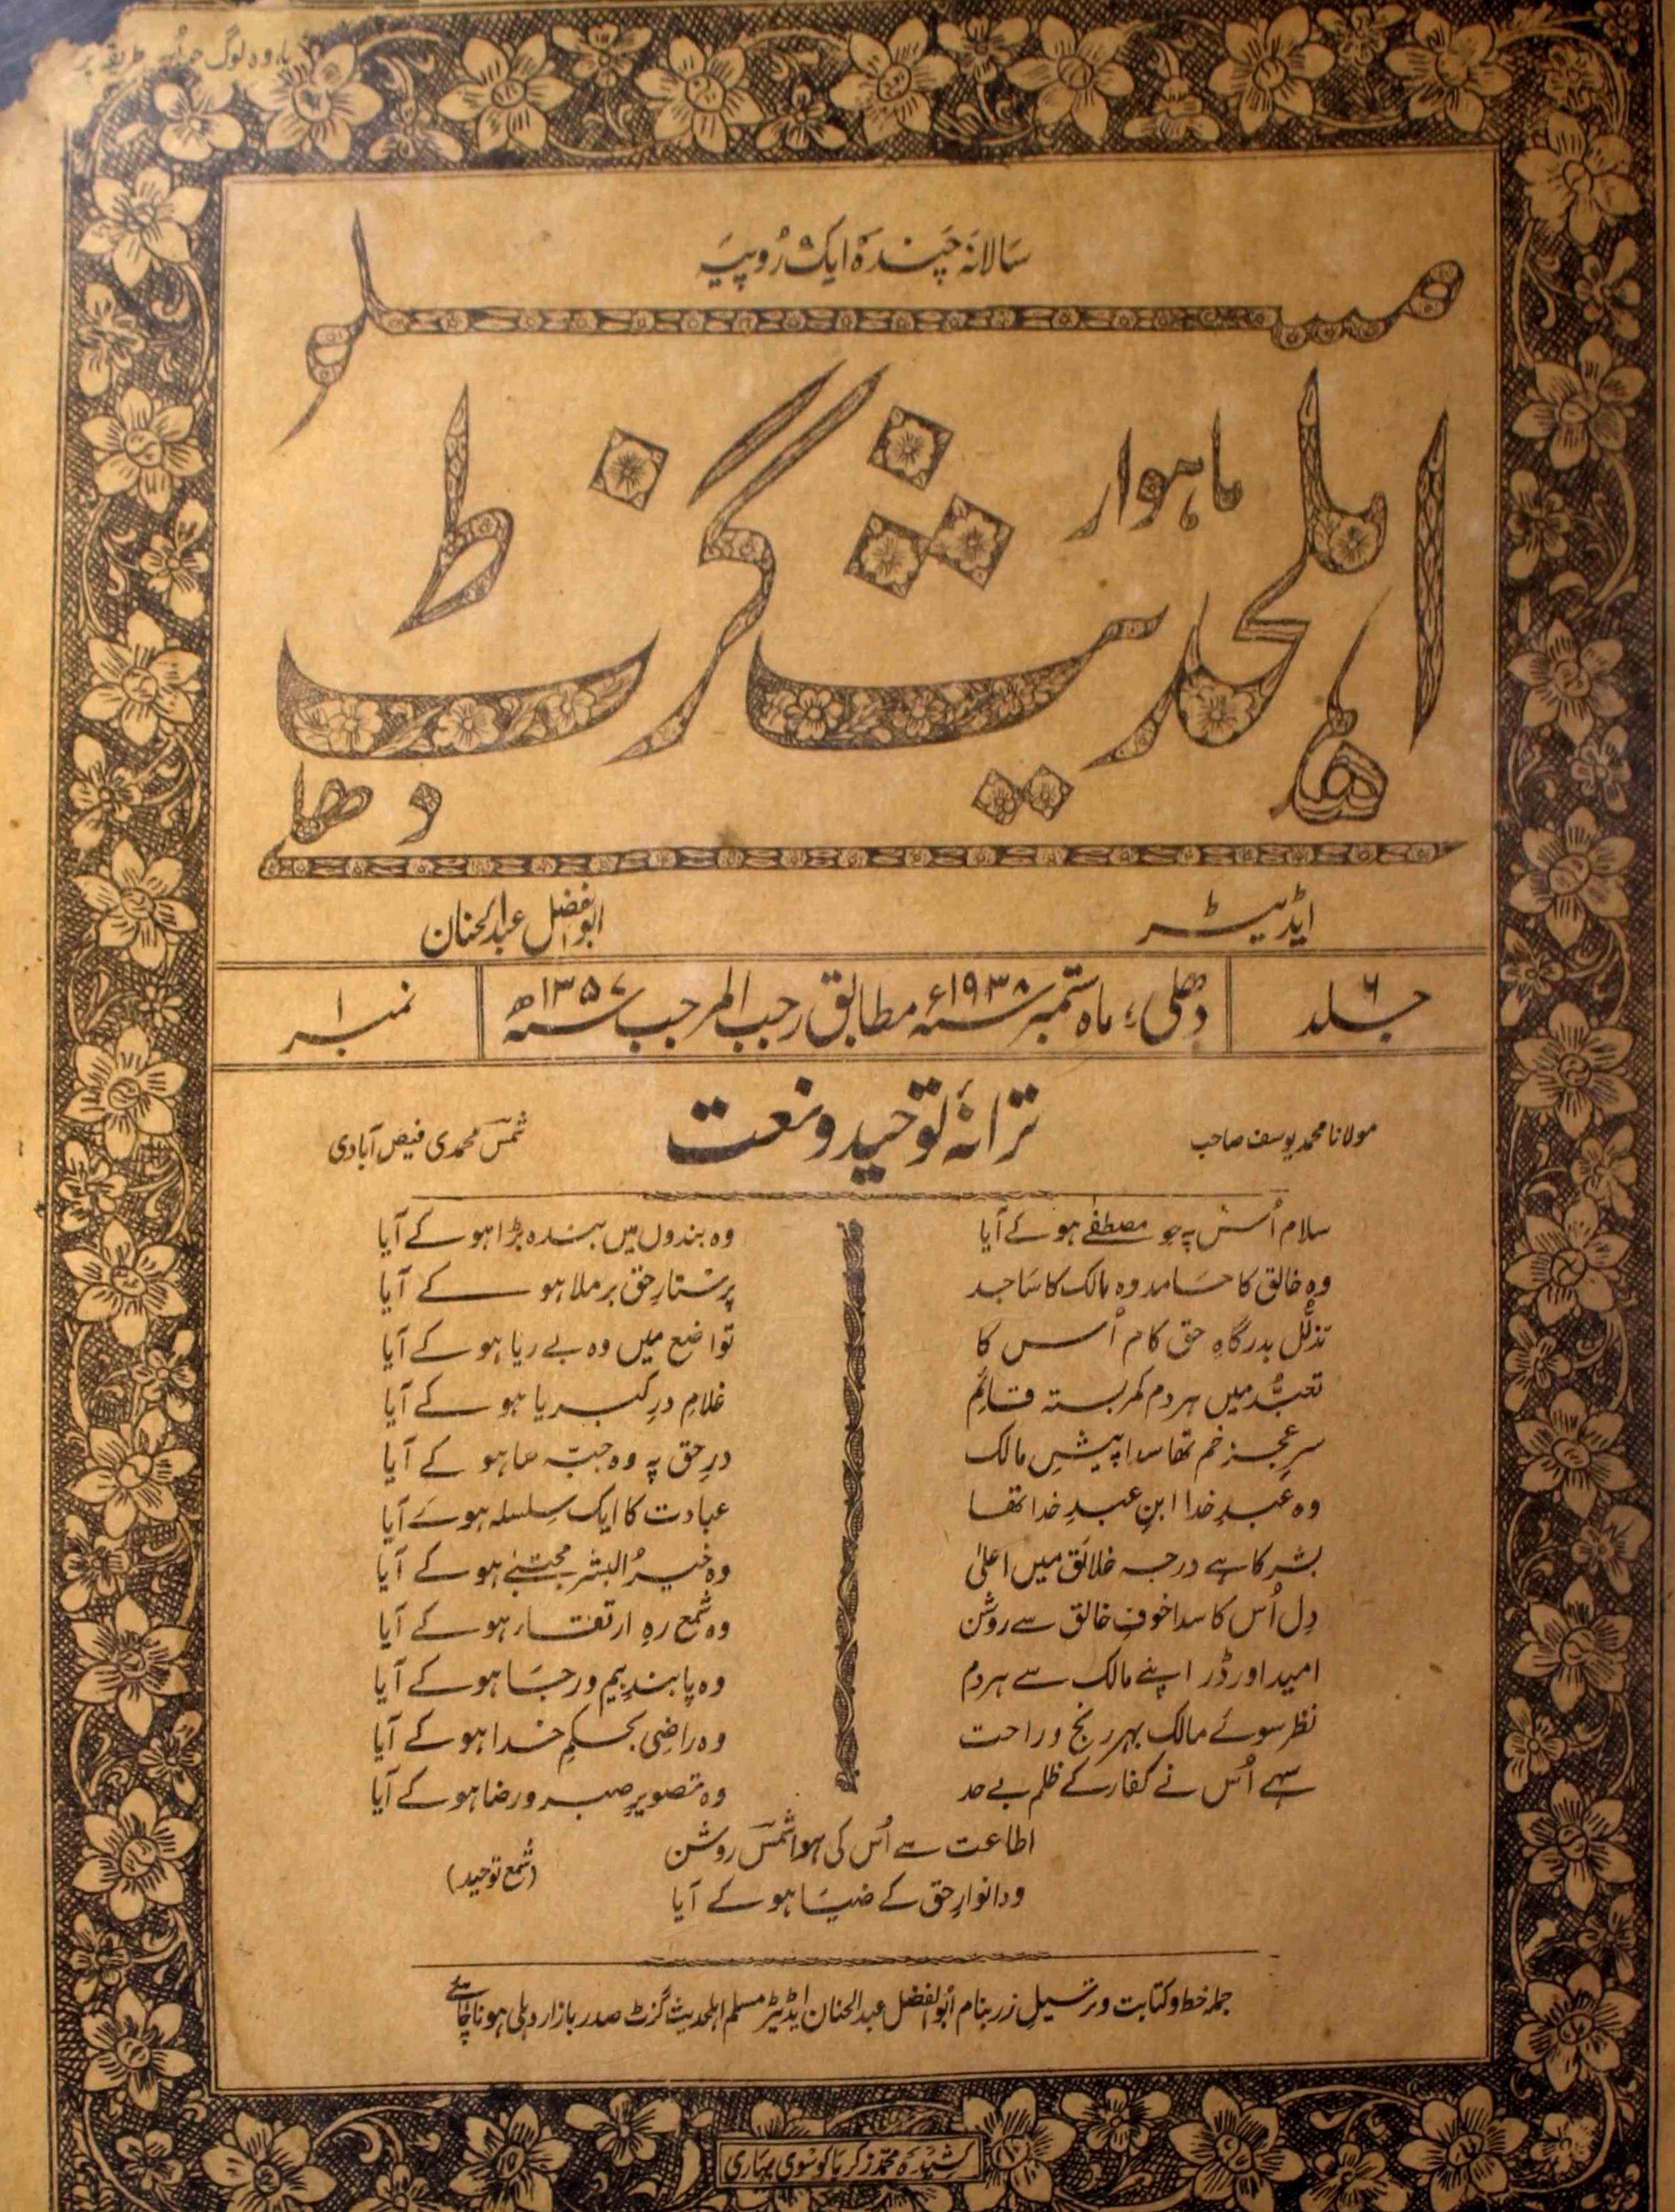 سالانہ چندہ ایک روپیہ
مسلم
ماہوار
اہلحدیث گزٹ
دھلی
ایڈیٹر ابوالفضل عبدالحنان
جلد ۶ دھلی، ماہ ستمبر سنہ ۱۹۳۸ء مطابق رجب المرجب سنہ ۱۳۵۷ھ نمبر ۱
مولانا محمد یوسف صاحب ترانۂ توحید و نعت شمس محمدی فیض آبادی
سلام اُس پہ جو مصطفٰے ہو کے آیا وہ بندوں میں بندہ بڑا ہو کے آیا
وہ خالق کا حامد وہ مالک کا ساجد پرستارِ حق برملا ہو کے آیا
تذلّل بدرگاہِ حق کام اُس کا تواضع میں وہ بے ریا ہو کے آیا
تعبُّد میں ہر دم کمر بستہ قائم غلامِ درِ کبریا ہو کے آیا
سرِ عجز خم تھا سدا پیشِ مالک درِ حق پہ وہ جبّہ سا ہو کے آیا
وہ عبدِ خدا ابنِ عبدِ خدا تھا عبادت کا ایک سِلسلہ ہو کے آیا
بشر کا ہے درجہ خلائق میں اعلیٰ وہ خیرُ البشر مجتبےٰ ہو کے آیا
دِل اُس کا سدا خوفِ خالق سے روشن وہ شمع رہِ ارتقاء ہو کے آیا
امید اور ڈر اپنے مالک سے ہر دم وہ پابندِ بیم و رجا ہو کے آیا
نظر سوئے مالک بہر رنج و راحت وہ راضی بحکمِ خدا ہو کے آیا
سہے اُس نے کفار کے ظلم بے حد وہ تصویرِ صبر و رضا ہو کے آیا
اطاعت سے اُس کی ہوا شمسؔ روشن
وہ انوارِ حق کے ضیا ہو کے آیا
(شمع توحید)
جملہ خط و کتابت و ترسیلِ زر بنام ابوالفضل عبدالحنان ایڈیٹر مسلم اہلحدیث گزٹ صدر بازار دہلی ہونا چاہئے
کشیدہ محمد زکریا کوسوی بہاری